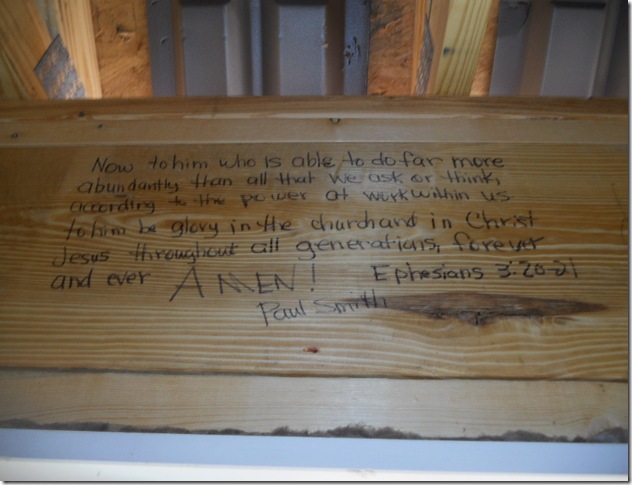 Now to him who is able to do far more
abundantly than all that we ask or think,
according to the power at work within us
to him be glory in the church and in Christ
Jesus throughout all generations, forever
and ever AMEN! Ephesians 3:20-21
Paul Smith